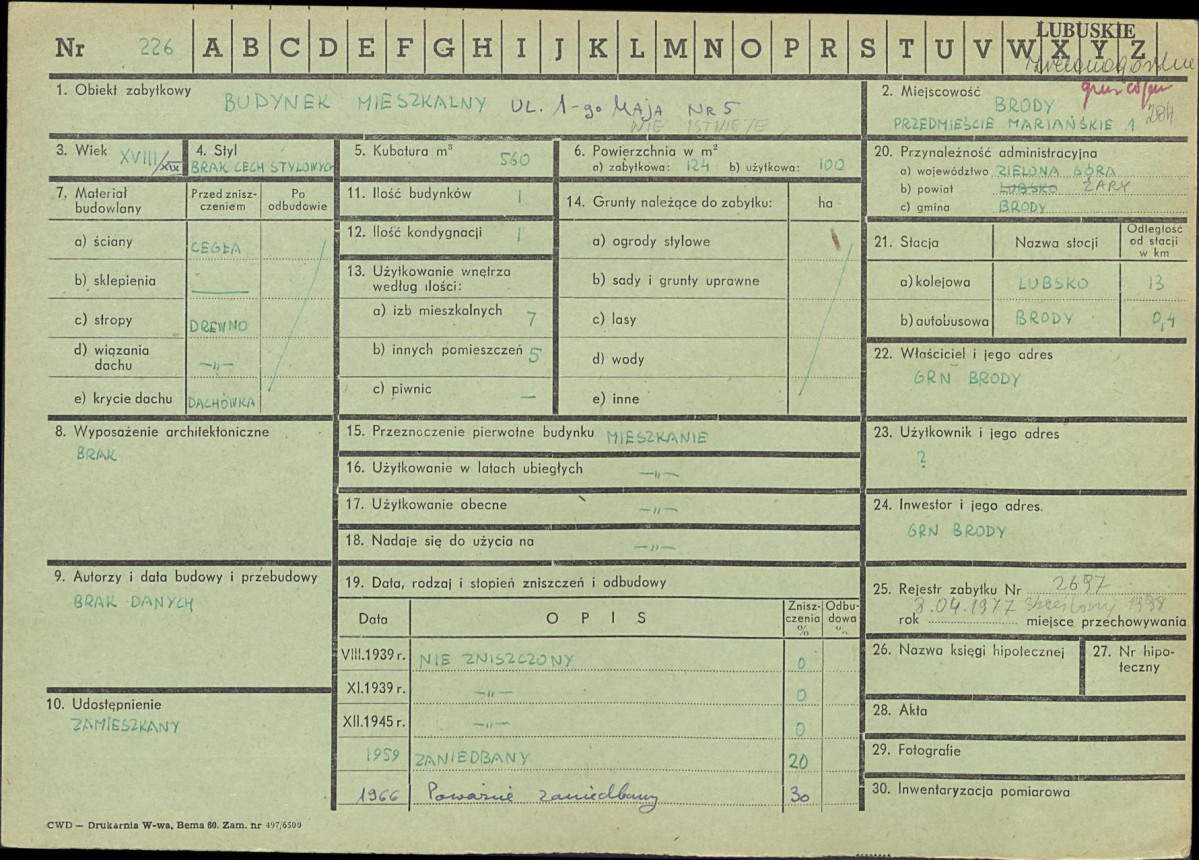 LUBUSKIE
Nr 226 A B C D E F G H I J K L M N O P R S T U V W X Y Z
1. Obiekt zabytkowy
BUDYNEK MIESZKALNY UL. 1-go MAJA NR 5
NIE ISTNIEJE
2. Miejscowość
BRODY
PRZEDMIEŚCIE MARIAŃSKIE 1
284
3. Wiek XVIII/XIX
4. Styl
BRAK CECH STYLOWYCH
5. Kubatura m³
560
6. Powierzchnia w m²
a) zabytkowa: 124 b) użytkowa: 100
20. Przynależność administracyjna
a) województwo ZIELONA GÓRA
b) powiat LUBSKO ŻARY
c) gmina BRODY
7. Materiał budowlany
Przed zniszczeniem
Po odbudowie
a) ściany CEGŁA
b) sklepienia —
c) stropy DREWNO
d) wiązania dachu —„—
e) krycie dachu DACHÓWKA
11. Ilość budynków 1
12. Ilość kondygnacji 1
13. Użytkowanie wnętrza
według ilości:
a) izb mieszkalnych 7
b) innych pomieszczeń 5
c) piwnic —
14. Grunty należące do zabytku: ha
a) ogrody stylowe
b) sady i grunty uprawne
c) lasy
d) wody
e) inne
21. Stacja Nazwa stacji Odległość od stacji w km
a) kolejowa LUBSKO 13
b) autobusowa BRODY 0,4
22. Właściciel i jego adres
GRN BRODY
8. Wyposażenie architektoniczne
BRAK
15. Przeznaczenie pierwotne budynku MIESZKANIE
16. Użytkowanie w latach ubiegłych —„—
17. Użytkowanie obecne —„—
18. Nadaje się do użycia na —„—
23. Użytkownik i jego adres
?
24. Inwestor i jego adres.
GRN BRODY
9. Autorzy i data budowy i przebudowy
BRAK DANYCH
10. Udostępnienie
ZAMIESZKANY
19. Data, rodzaj i stopień zniszczeń i odbudowy
Data O P I S Zniszczenia % Odbudowa %
VIII.1939 r. NIE ZNISZCZONY 0
XI.1939 r. —„— 0
XII.1945 r. —„— 0
1959 ZANIEDBANY 20
1966 Poważnie zaniedbany 30
25. Rejestr zabytku Nr 2697
8.04.1977 skreślony
rok miejsce przechowywania
26. Nazwa księgi hipotecznej
27. Nr hipoteczny
28. Akta
29. Fotografie
30. Inwentaryzacja pomiarowa
CWD — Drukarnia W-wa, Bema 60. Zam. nr 497/6500